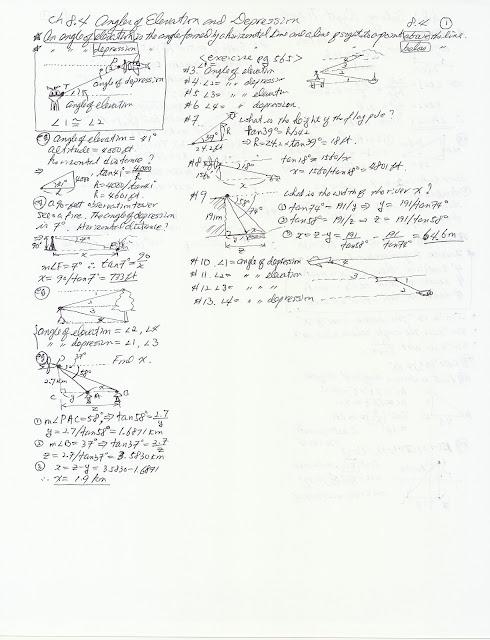 Ch 8.4 Angles of Elevation and Depression
8.4 ①
* An angle of elevation is the angle formed by a horizontal line and a line of sight to a point above the line.
" " " depression " " " " below "
angle of depression
angle of elevation
∠1 ≅ ∠2
angle of elevation = 41°
altitude = 4000 ft
horizontal distance?
⇒ tan41° = 4000/h
h = 4000/tan41°
h = 4601 ft
a 90-foot observation tower
sees a fire. The angle of depression
is 7°. Horizontal distance?
90'
7°
x
m∠F = 7° ∴ tan7° = 90/x
x = 90/tan7° = 733 ft
angle of elevation = ∠2, ∠4
" " depression = ∠1, ∠3
Find x.
37°
58°
2.7 km
P
C y A x B
z
① m∠PAC = 58° ⇒ tan58° = 2.7/y
y = 2.7/tan58° = 1.6871 km
② m∠B = 37° ⇒ tan37° = 2.7/z
z = 2.7/tan37° = 3.5830 km
③ x = z-y = 3.5830-1.6871
∴ x = 1.9 km
<exercise pg 565>
#3. angle of elevation
#4. ∠2 = " " depression
#5 ∠3 = " " elevation
#6 ∠4 = " " depression.
#7. What is the height of the flag pole?
39°
24.2 ft
h
tan39° = h/24.2
⇒ h = 24.2 × tan39° = 18 ft.
#8
18°
tan18° = 1560/x
x = 1560/tan18° = 4801 ft.
#9 What is the width of the river x?
74°
191m
y x
z
① tan74° = 191/y ⇒ y = 191/tan74°
② tan58° = 191/z ⇒ z = 191/tan58°
③ x = z-y = 191/tan58° - 191/tan74° = 64.6m
#10 ∠1 = angle of depression
#11. ∠2 = " " elevation
#12 ∠3 = " " "
#13. ∠4 = " " depression